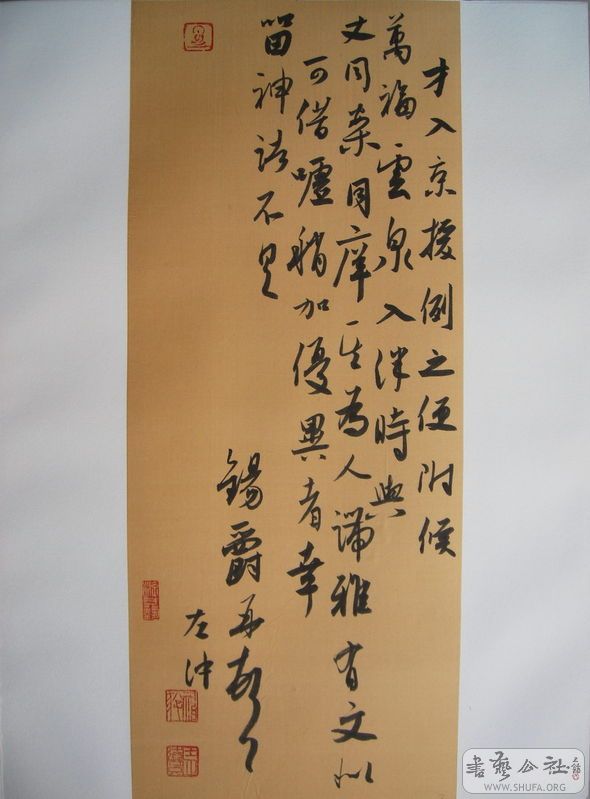 才入京援例之便附候
萬福雲泉入泮時與
丈同案同庠生為人謙雅有文似
可借噓稍加優異者幸
留神諸不具
錫爵再頓首
左沖
書藝公社
WWW.SHUFA.ORG